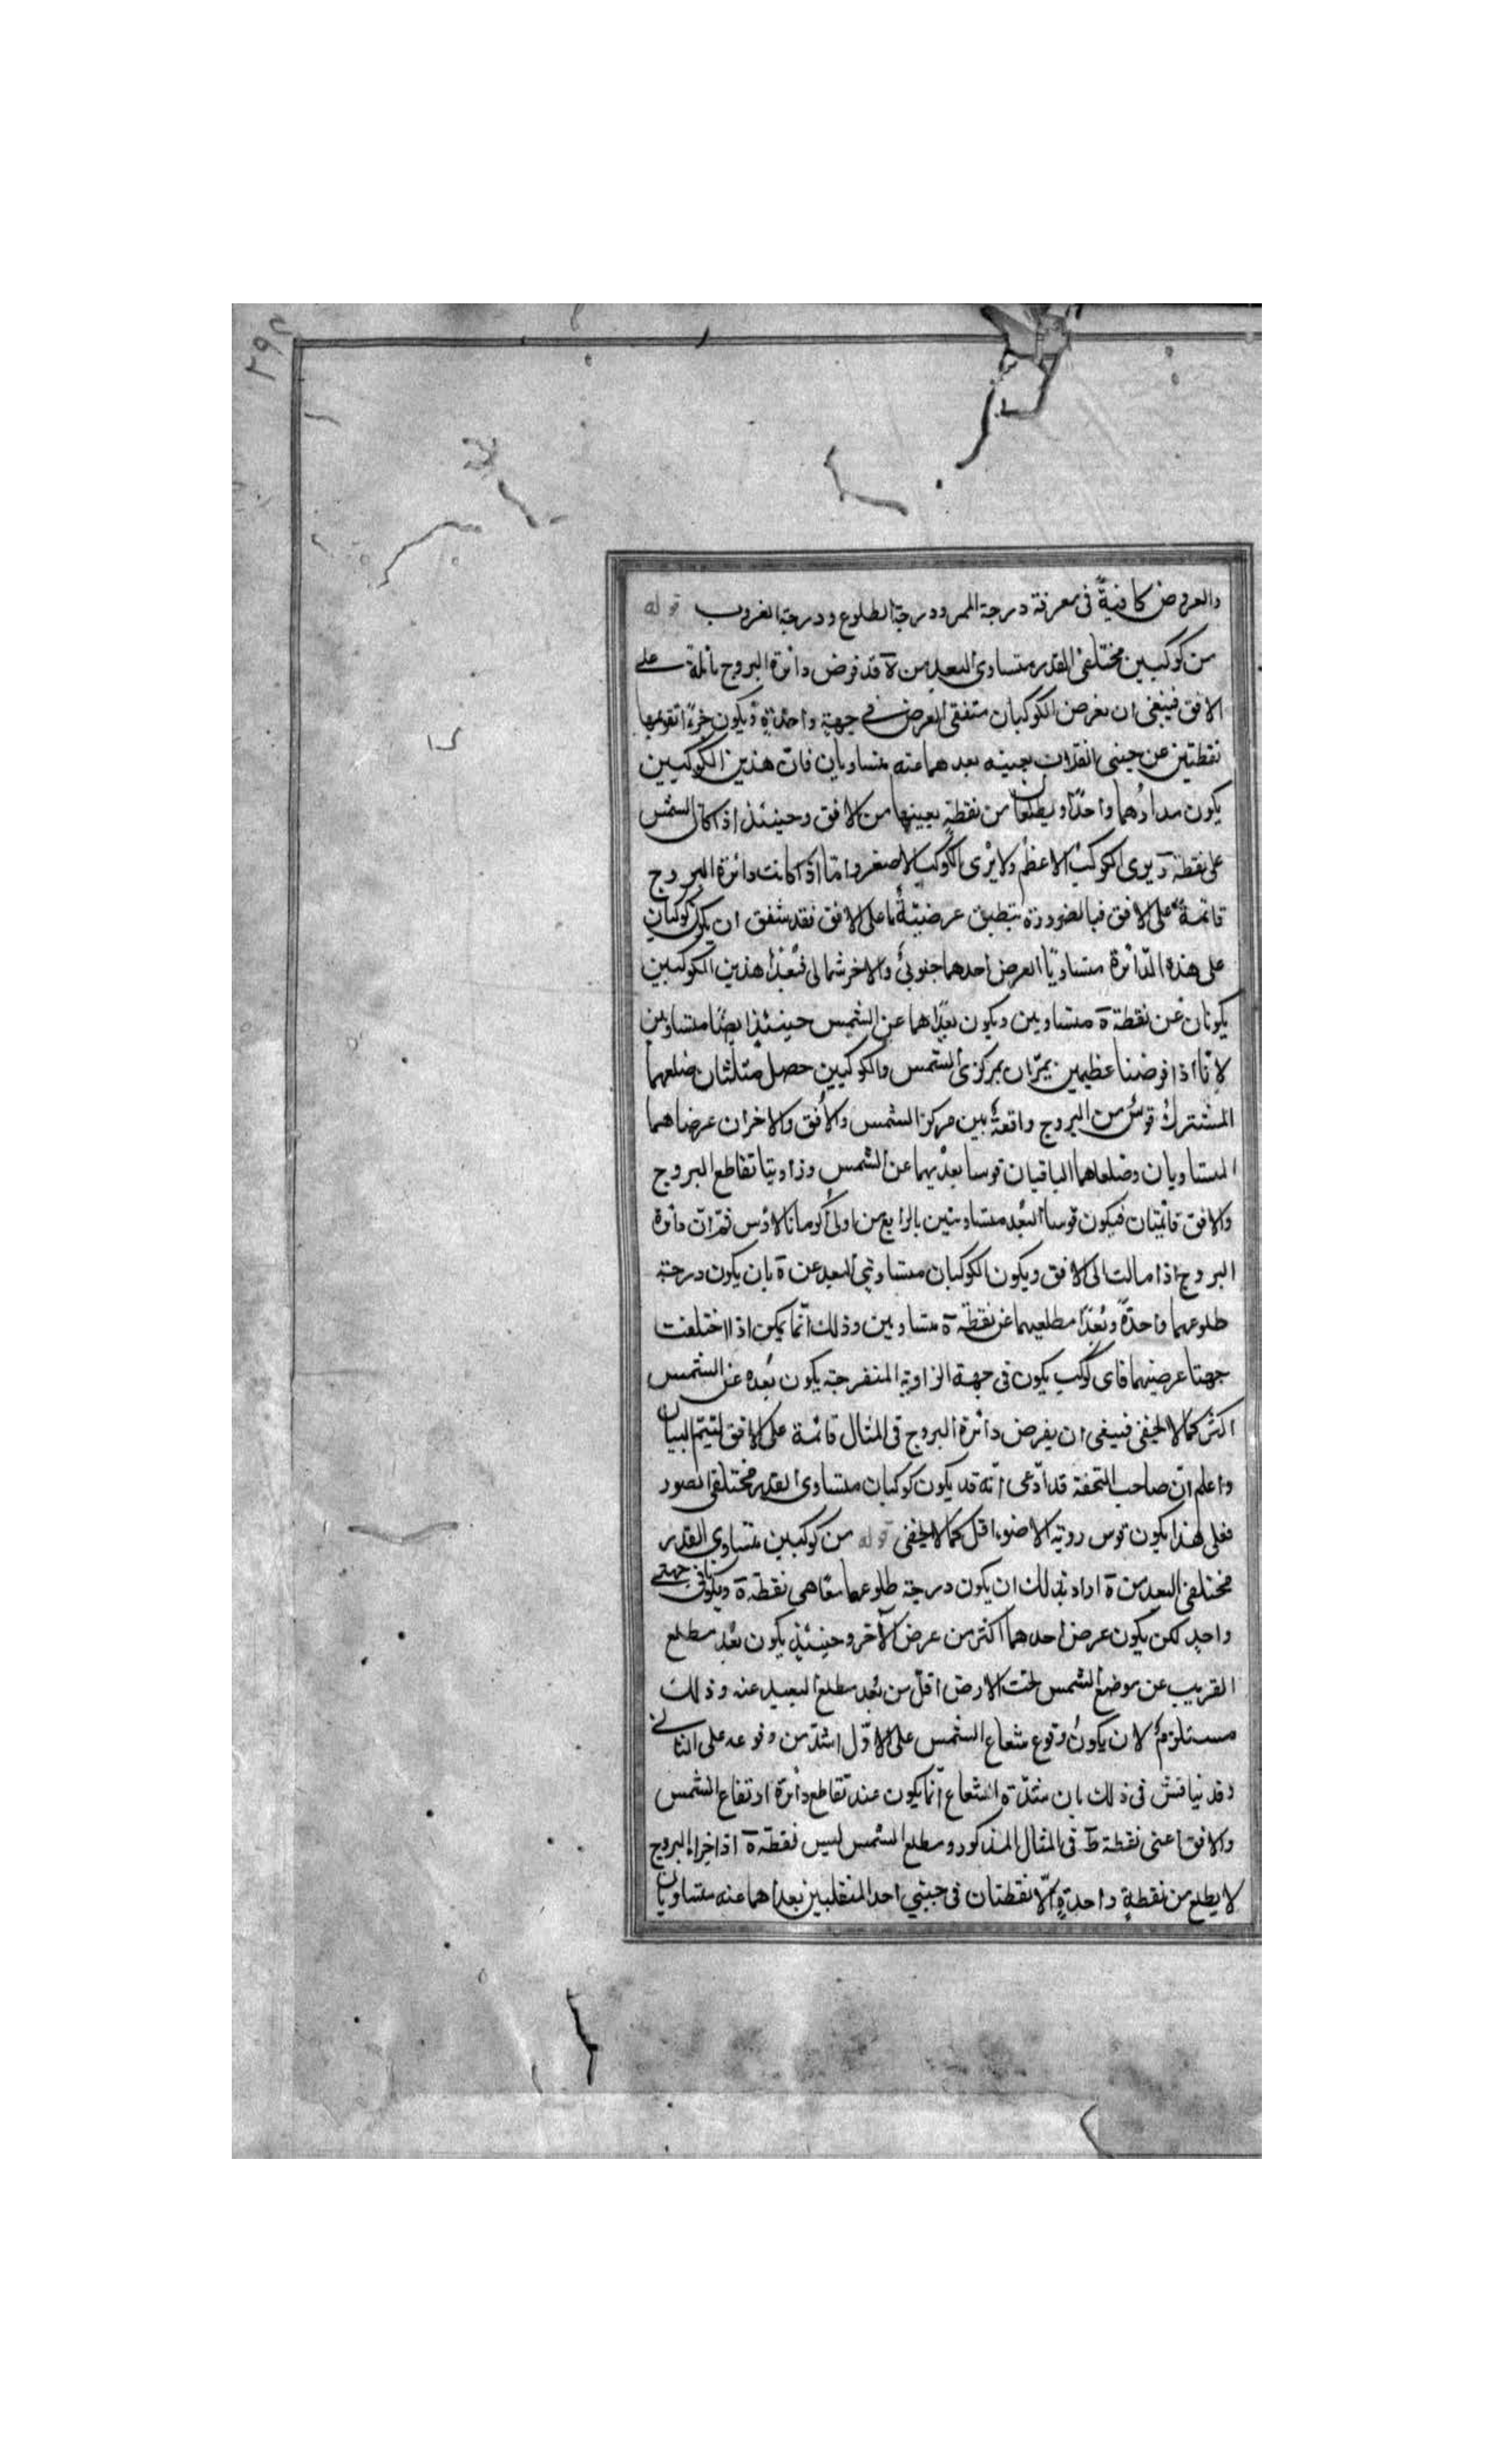 ٢٩٤
والعروض كافيةً فى معرفة درجة الممر ودرجة الطلوع ودرجة الغروب قوله
من كوكبين مختلفى القدر متساوى البعد من ة قد فرض دائرة البروج مائلة على
الافق فينبغى ان يفرض الكوكبان متفقى العرض فى جهة واحدة ويكون جزءا تقويمها
نقطتين عن جنبى بعينه بعدهما عنه متساويان فان هذين الكوكبين
يكون مدارهما واحدًا ويطلعان من نقطة بعينها من الافق وحينئذ اذا كان الشمس
على نقطة يرى الكوكب الاعظم ولا يرى الكوكب الاصغر واما اذا كانت دائرة البروج
قائمة على الافق فبالضرورة ينطبق عرضيتها على الافق فقد يتفق ان يكون كوكبان
على هذه الدائرة متساويا العرض احدهما جنوبى والاخر شمالى فبعدا هذين الكوكبين
يكونان عن نقطة ة متساويين ويكون بعداهما عن الشمس حينئذ ايضا متساويين
لانا اذا فرضنا عظيمين يمران بمركزى الشمس والكوكبين حصل مثلثان ضلعهما
المشترك قوس من البروج واقعة بين مركز الشمس والافق والاخران عرضاهما
المتساويان وضلعاهما الباقيان قوسا بعديهما عن الشمس وزاويتا تقاطع البروج
والافق قائمتان فيكون قوسا البعد متساويتين بالرابع من اولى اكر مانالاوس ثم ان دائرة
البروج اذا مالت الى الافق ويكون الكوكبان متساويى البعد عن ة بان يكون درجة
طلوعهما واحدةً وبُعدا مطلعيهما عن نقطة ة متساويين وذلك انما يمكن اذا اختلفت
جهتا عرضيهما فاى كوكب يكون فى جهة الزاوية المنفرجة يكون بعده عن الشمس
اكثر كما لا يخفى فينبغى ان يفرض دائرة البروج فى المثال قائمة على الافق ليتم البيان
واعلم ان صاحب التحفة قد ادعى انه قد يكون كوكبان متساوى القدر مختلفى الضوء
فعلى هذا يكون قوس روية الاضوء اقل كما لا يخفى قوله من كوكبين متساوى القدر
مختلفى البعد من ة اراد بذلك ان يكون درجة طلوعهما معًا هى نقطة ة ويكونان فى جهة
واحد لكن يكون عرض احدهما اكثر من عرض الآخر وحينئذ يكون بعد مطلع
القريب عن موضع الشمس تحت الارض اقل من بعد مطلع البعيد عنه وذلك
مستلزم لان يكون وقوع شعاع الشمس على الاول اشد من وقوعه على الثانى
وقد يناقش فى ذلك بان شدة الشعاع انما يكون عند تقاطع دائرة ارتفاع الشمس
والافق اعنى نقطة ط فى المثال المذكور ومطلع الشمس ليس نقطة ة اذ اجزاء البروج
لا يطلع من نقطة واحدة الا نقطتان فى جنبى احد المنقلبين بعداهما عنه متساويان